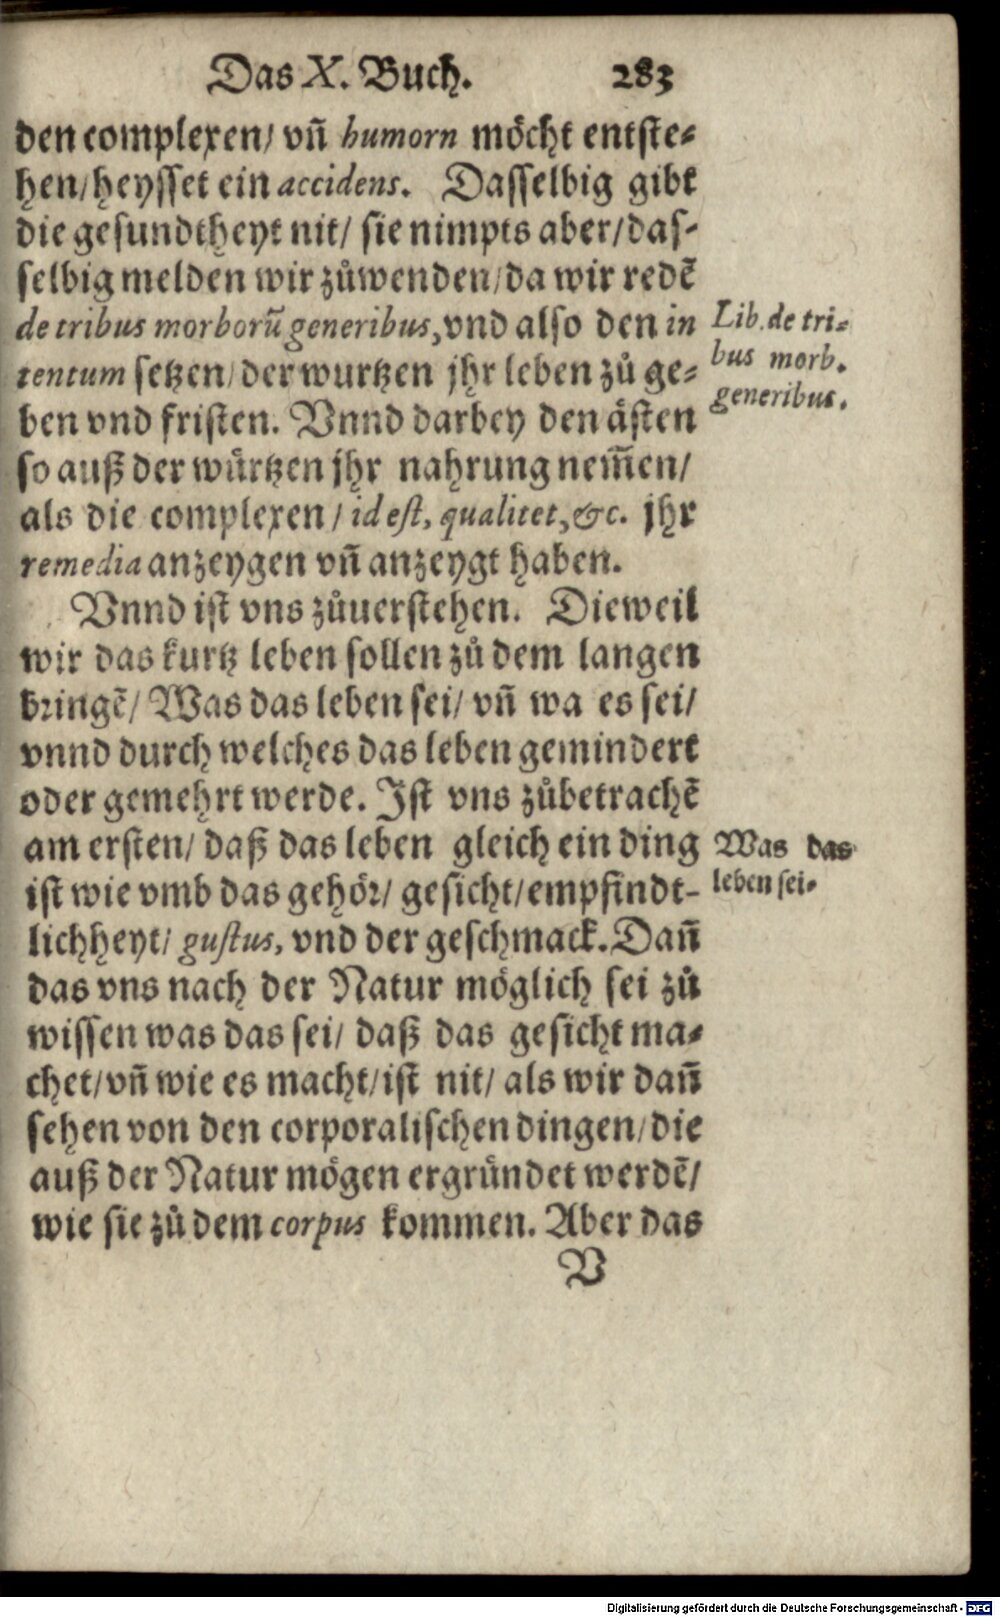 Das X. Buch. 283
den complexen/ vñ humorn möcht entste-
hen/ heysset ein accidens. Dasselbig gibt
die gesundtheyt nit/ sie nimpts aber/ das-
selbig melden wir zůwenden/ da wir redẽ
de tribus morborũ generibus, vnd also den in
tentum setzen/ der wurtzen jhr leben zů ge-
ben vnd fristen. Vnnd darbey den ästen
so auß der würtzen jhr nahrung nem̃en/
als die complexen/ id est, qualitet, &c. jhr
remedia anzeygen vñ anzeygt haben.
Vnnd ist vns zůuerstehen. Dieweil
wir das kurtz leben sollen zů dem langen
bringẽ/ Was das leben sei/ vñ wa es sei/
vnnd durch welches das leben gemindert
oder gemehrt werde. Ist vns zůbetrachẽ
am ersten/ daß das leben gleich ein ding
ist wie vmb das gehör/ gesicht/ empfindt-
lichheyt/ gustus, vnd der geschmack. Dañ
das vns nach der Natur möglich sei zů
wissen was das sei/ daß das gesicht ma-
chet/ vñ wie es macht/ ist nit/ als wir dañ
sehen von den corporalischen dingen/ die
auß der Natur mögen ergründet werdẽ/
wie sie zů dem corpus kommen. Aber das
V
Lib. de tri-
bus morb.
generibus.
Was das
leben sei.
Digitalisierung gefördert durch die Deutsche Forschungsgemeinschaft - DFG